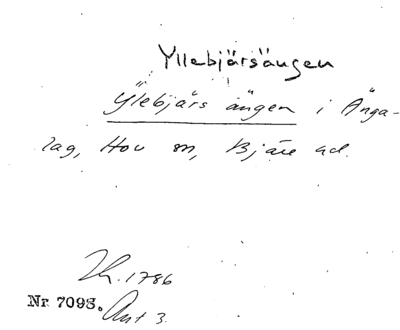 Yllebjärsängen
Ÿlebjärs ängen i Änga-
lag, Hov sn, Bjäre hd.
Lh. 1786
Nr 7098. Akt 3.